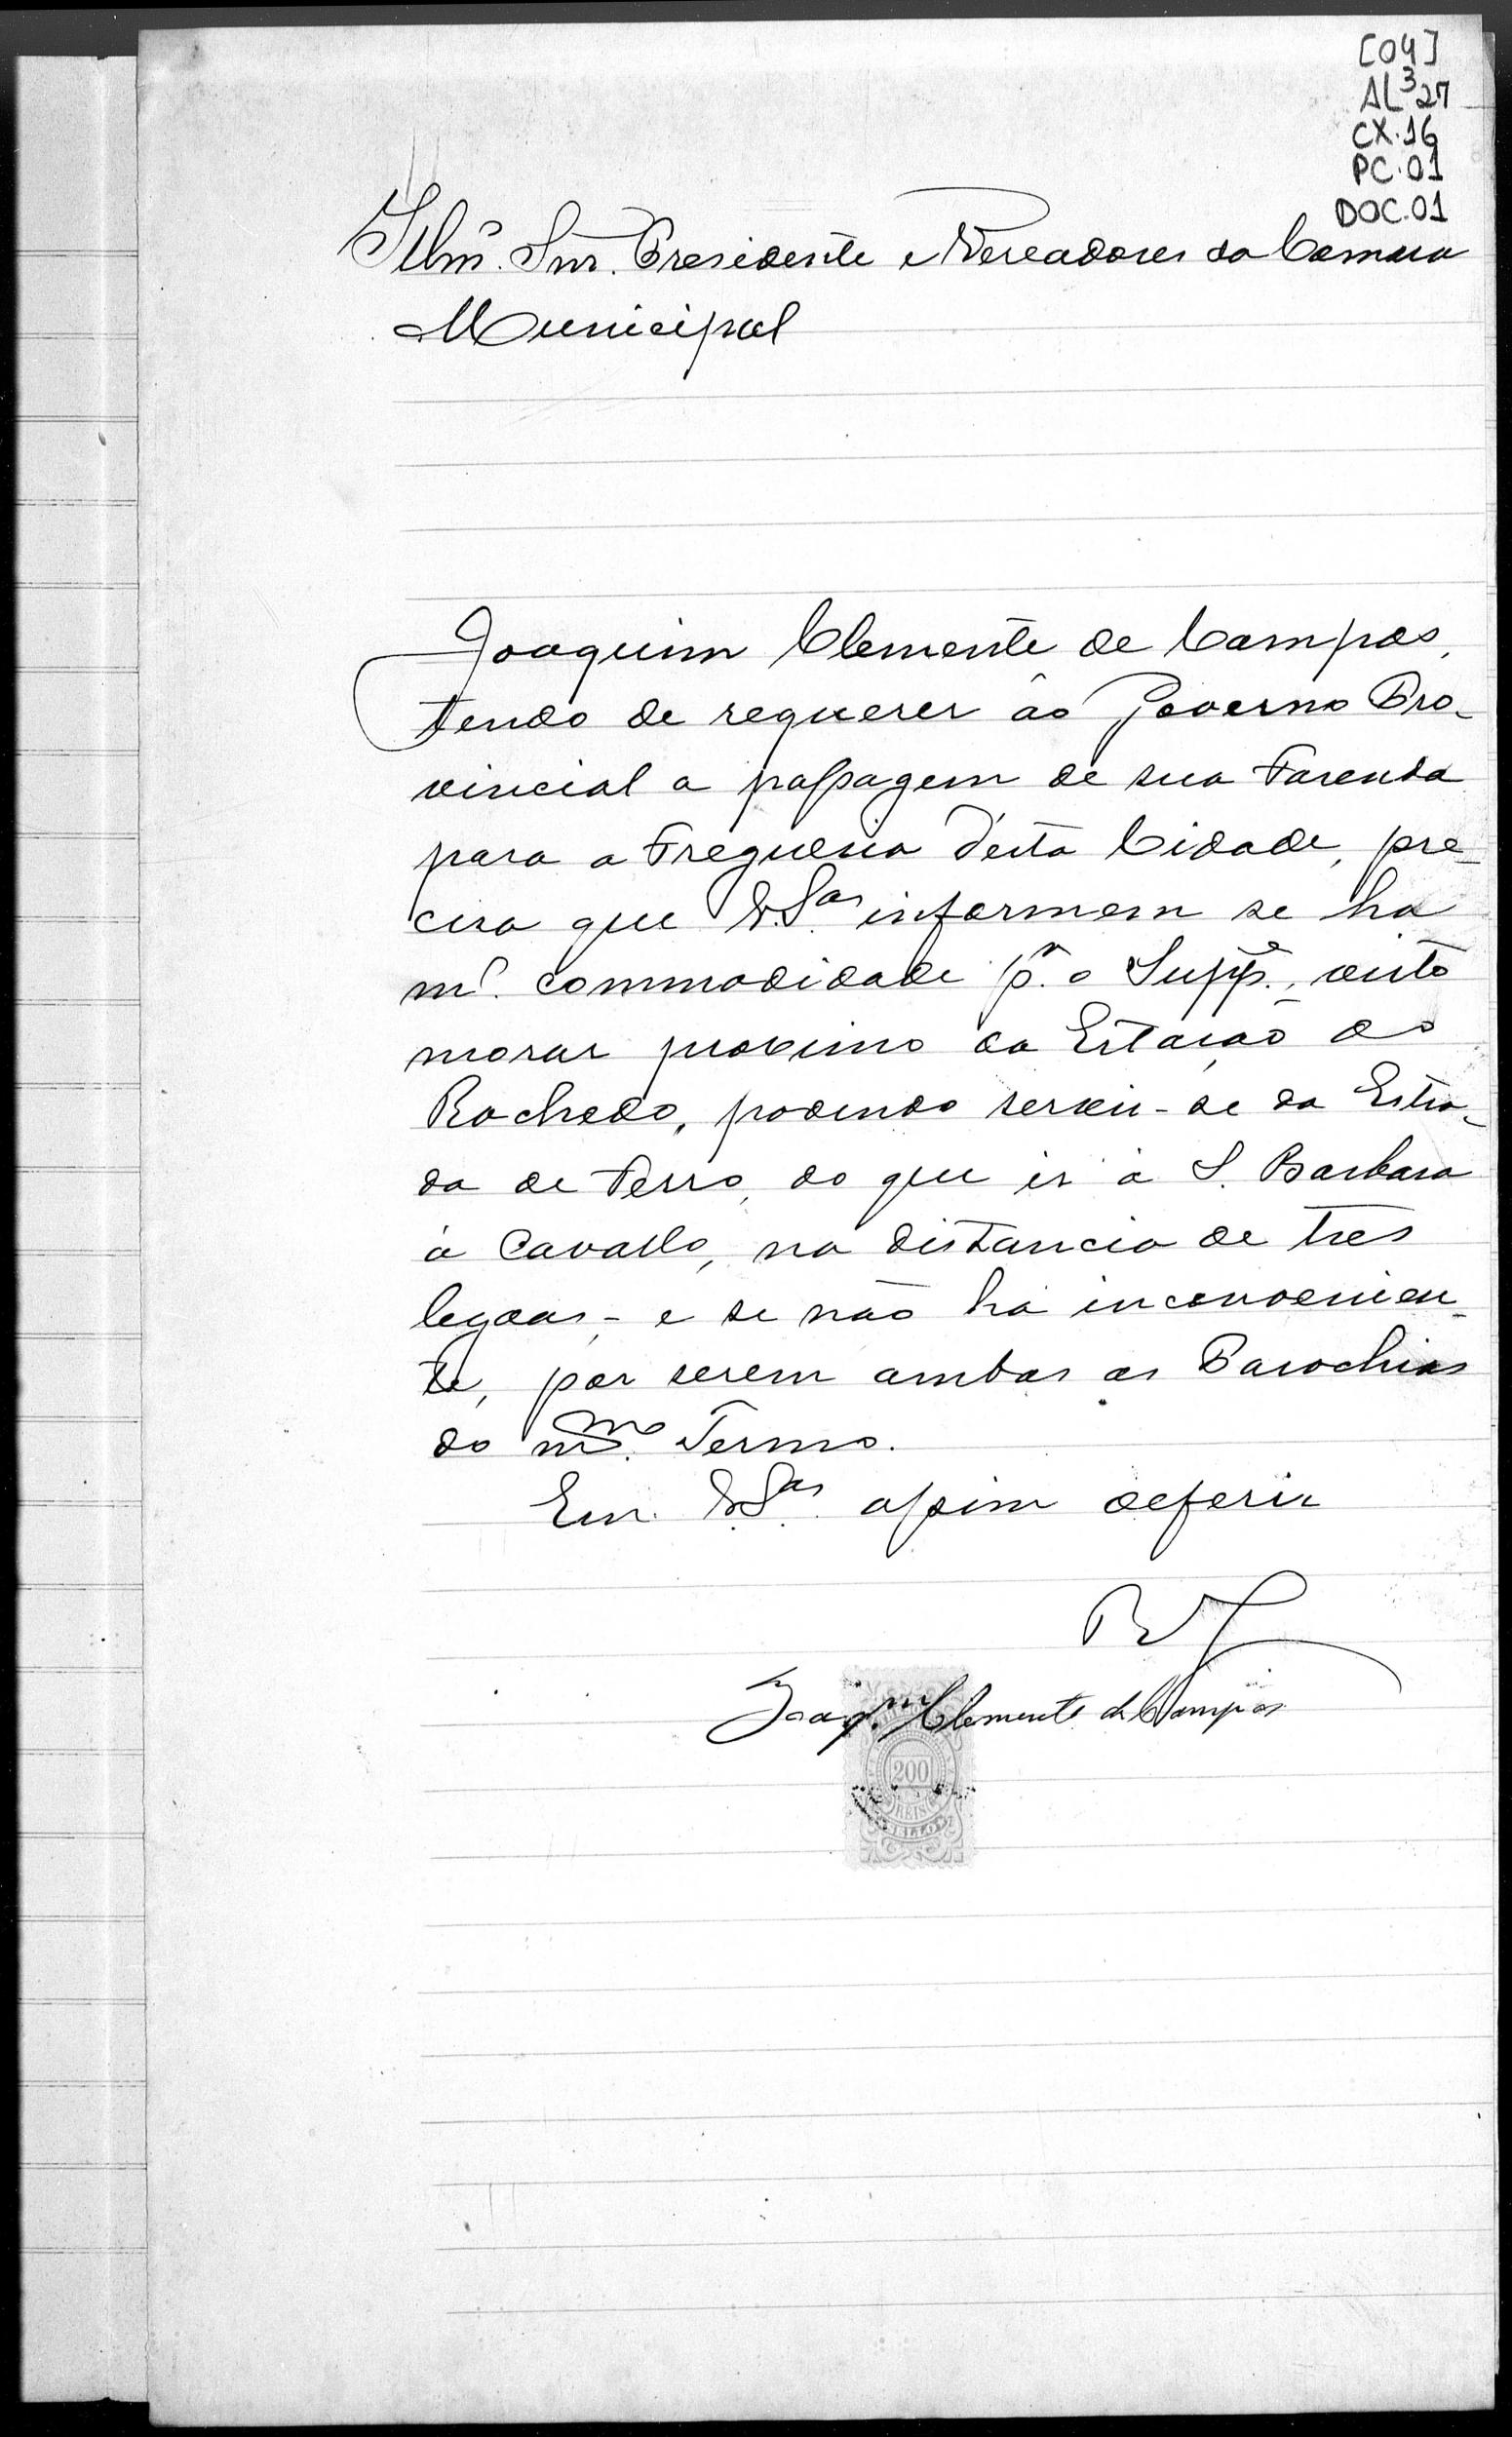 [04]
AL³27
CX.16
PC.01
DOC.01
Illmº. Snr. Presidente e Vereadores da Camara
Municipal
Joaquim Clemente de Campos,
tendo de requerer ao Governo Pro-
vincial a passagem de sua Fazenda
para a Freguesia d'esta Cidade, pre-
cisa que V.Sas informem se ha
mr. commodidade pa. o Suppe., visto
morar proximo da Estação do
Rochedo, podendo servir-se da Estra-
da de Ferro, do que ir á S. Barbara
á Cavallo, na distancia de tres
legoas, - e se não há inconvenien-
te, por serem ambas as Parochias
do mmo. Termo.
Em V.Sas assim deferir
Joaqm. Clemente de Campos
200
REIS